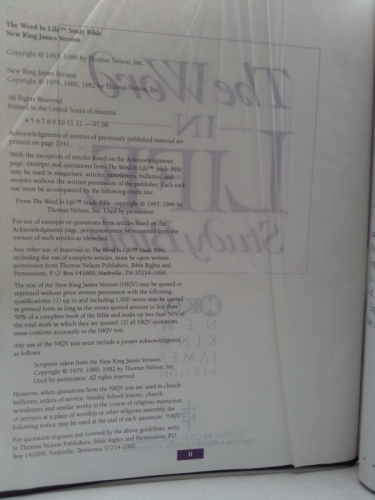 The Word In Life™ Study Bible
New King James Version
Copyright © 1993, 1996 by Thomas Nelson, Inc.
New King James Version
Copyright © 1979, 1980, 1982 by Thomas Nelson, Inc.
All Rights Reserved
Printed in the United States of America
4 5 6 7 8 9 10 11 12 — 01 00
Acknowledgments of sources of previously published material are
printed on page 2341.
With the exception of articles listed on the Acknowledgments
page, excerpts and quotations from The Word In Life™ Study Bible
may be used in magazines, articles, newsletters, bulletins, and
reviews without the written permission of the publisher. Each such
use must be accompanied by the following credit line:
From The Word In Life™ Study Bible, copyright © 1993, 1996 by
Thomas Nelson, Inc. Used by permission.
For use of excerpts or quotations from articles listed on the
Acknowledgments page, permission must be requested from the
owners of such articles as identified.
Any other use of materials in The Word In Life™ Study Bible,
including the use of complete articles, must be upon written
permission from Thomas Nelson Publishers, Bible Rights and
Permissions, P. O. Box 141000, Nashville, TN 37214-1000.
The text of the New King James Version (NKJV) may be quoted or
reprinted without prior written permission with the following
qualifications: (1) up to and including 1,000 verses may be quoted
in printed form as long as the verses quoted amount to less than
50% of a complete book of the Bible and make up less than 50% of
the total work in which they are quoted; (2) all NKJV quotations
must conform accurately to the NKJV text.
Any use of the NKJV text must include a proper acknowledgment
as follows:
Scripture taken from the New King James Version.
Copyright © 1979, 1980, 1982 by Thomas Nelson, Inc.
Used by permission. All rights reserved.
However, when quotations from the NKJV text are used in church
bulletins, orders of service, Sunday School lessons, church
newsletters and similar works in the course of religious instruction
or services at a place of worship or other religious assembly, the
following notice may be used at the end of each quotation: "NKJV."
For quotation requests not covered by the above guidelines, write
to Thomas Nelson Publishers, Bible Rights and Permissions, P.O.
Box 141000, Nashville, Tennessee 37214-1000.
The Word
IN
LIFE
Study Bible
NKJV
NEW
KING
JAMES
VERSION